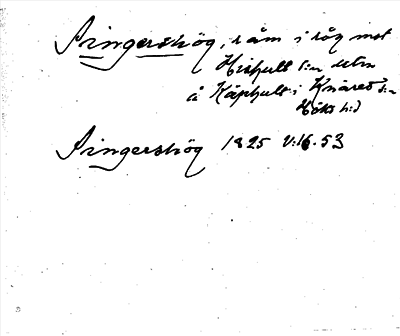 Singershög, råm i rög mot
Hishult s:n utm
å Kåphult i Knäred s:n
Höks h:d
Singershög 1825 V:16.53